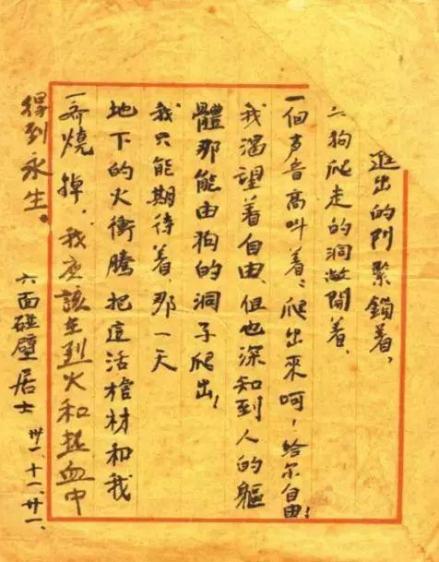 進出的門緊鎖着,
狗爬走的洞敞開着、
一個声音高叫着:爬出來呵,給尔自由!
我渴望着自由、但也深知到人的軀
體那能由狗的洞子爬出!
我只能期待着,那一天
地下的火衝騰把這活棺材和我
一齐燒掉,我应該在烈火和热血中
得到永生。
六面碰壁居士 卅一、十一、廿一、